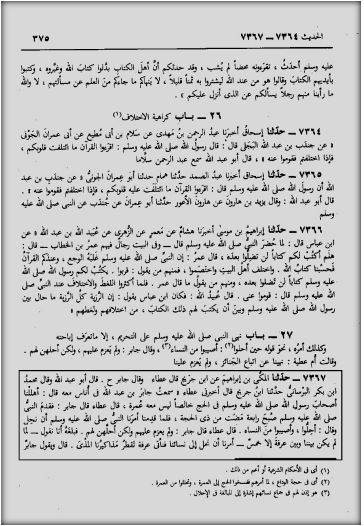 الحديث ٧٣٦٤ — ٧٣٦٧ ٣٧٥
عليه وسلم أحدث ، تقرءونه محضاً لم يُشب ، وقد حدثكم أنَّ أهلَ الكتاب بدَّلوا كتابَ الله وغيَّروه ، وكتبوا
بأيديهم الكتابَ وقالوا هو من عند الله ليشتروا به ثمناً قليلاً ، ألا ينهاكم ما جاءكم منَ العلم عن مسألتهم ، لا والله
ما رأينا منهم رجلاً يسألكم عن الذى أنزل عليكم » .
٢٦ — باب كراهية الاختلاف (١)
٧٣٦٤ — حدَّثنا إسحاق أخبرنا عبدُ الرحمن بنُ مَهدى عن سلام بن أبى مُطيع عن أبى عمرانَ الجَوْنى
« عن جندَب بن عبد الله البجَلى قال : قال رسول الله صلى الله عليه وسلم : اقرءوا القرآن ما ائتلفت قلوبكم ،
فإذا اختلفتم فقوموا عنه » ، قال أبو عبد الله سمع عبد الرحمن سلَّاما
٧٣٦٥ — حدَّثنا إسحاق أخبرنا عبدُ الصمد حدَّثنا همام حدثنا أبو عمرانَ الجونىُّ « عن جندَب بن عبد
الله أن رسول الله صلى الله عليه وسلم قال : اقرءوا القرآن ما ائتلفت عليه قلوبكم ، فإذا اختلفتم فقوموا عنه » .
قال أبو عبد الله : وقال يزيد بن هارونَ عن هارونَ الأعور حدَّثنا أبو عِمرانَ عن جُندَب عن النبى صلى الله عليه
وسلم
٧٣٦٦ — حدَّثنا إبراهيمُ بن موسىٰ أخبرنا هشامٌ عن مَعمر عن الزُّهرى عن عُبيد الله بن عبد الله « عن
ابن عباس قال : لما حُضرَ النبىُّ صلى الله عليه وسلم قال — وفى البيت رجالٌ فيهم عمرُ بن الخطاب — قال :
هَلم أكتُبْ لكم كتاباً لن تَضِلُّوا بعدَه ، قال عمرُ : إن النبىَّ صلى الله عليه وسلم غلبَهُ الوجع ، وعندكم القرآنُ
فحسبُنا كتابُ الله . واختلف أهلُ البيت واختَصموا ، فمنهم من يقول : قربوا . يكتُبْ لكم رسول الله صلى الله
عليه وسلم كتاباً لن تضلوا بعده ، ومنهم من يقولُ ما قال عمر . فلما أكثروا اللغطَ والاختلاف عند النبىِّ صلى
الله عليه وسلم قال : قوموا عنى . قال عُبيدُ الله : فكان ابن عباس يقول : إن الرَّزيةَ كلَّ الرَّزية ما حال بين
رسول الله صلى الله عليه وسلم وبين أن يكتبَ لهم ذلك الكتاب ، من اختلافهم ولغطهم »
٢٧ — باب نهى النبى صلى الله عليه وسلم على التحريم ، إلا ما تعرَف إباحته
وكذلك أمرُه ، نحوَ قوله حين أحلوا (٢) : أصيبوا من النساء (٣) ، وقال جابر : ولم يَعزِم عليهم ، ولكن أحلَّهن لهم .
وقالت أم عطية : نهينا عن اتباع الجنائز ، ولم يُعزم علينا
٧٣٦٧ — حدَّثنا المكى بن إبراهيمَ عن ابن جُريج قال عطاء وقال جابر ح . قال أبو عبد الله وقال محمدُ
ابن بكرٍ البُرسانىُّ حدَّثنا ابنُ جُريج قال أخبرنى عطاء « سمعتُ جابرَ بنَ عبد الله فى أناس معه قال : أهللنا
أصحابَ رسول الله صلى الله عليه وسلم فى الحج خالصاً ليس معه عُمرة ، قال عطاء قال جابر : فقدم النبىُّ
صلى الله عليه وسلم صبحَ رابعة مَضت من ذى الحجة ، فلما قدِمنا أمرَنا النبىُّ صلى الله عليه وسلم أن نحلَّ
وقال : أحِلُّوا ، وأصيبوا منَ النساء . قال عطاء قال جابر : ولم يَعزِم عليهم ولكن أحلَّهنَّ لهم . فبلَغَه أنا نقول — لما
لم يكن بيننا وبين عرفةَ إلا خمسٌ — أمرَنا أن نحل إلى نسائنا فنأتى عرفةَ تَقطُر مَذاكيرُنا المذىَ . قال ويقول جابرٌ
(١) أى فى الأحكام الشرعية أو أعم من ذلك .
(٢) أى فى حجة الوداع ، لما أمرهم ففسخوا الحج إلى العمرة ، وتحللوا من العمرة .
(٣) هو إذن لهم فى جماع نسائهم إشارة إلى المبالغة فى الإحلال .